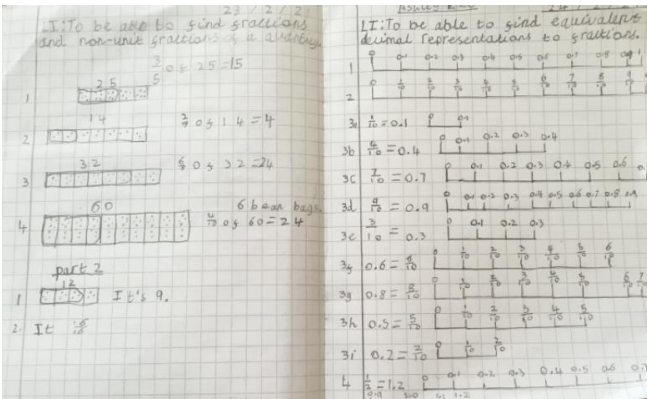 23/2/21
LI: To be able to find fractions
and non-unit fractions of a quantity.
1 25 3/5 of 25=15
2 14 of 14=4
3 32 of 32=24
6 bean bags.
4 60 of 60=24
part 2
1 12 It's 9.
2. It
LI: To be able to find equivalent
decimal representations to fractions.
1 0 0.1 0.2 0.3 0.4 0.5 0.6 0.7 0.8 0.9 1
2 0 1/10 2/10 3/10 4/10 5/10 6/10 7/10 8/10 9/10
3a 1/10=0.1 0 0.1
3b 4/10=0.4 0 0.1 0.2 0.3 0.4
3c 7/10=0.7 0 0.1 0.2 0.3 0.4 0.5 0.6
3d 9/10=0.9 0 0.1 0.2 0.3 0.4 0.5 0.6 0.7 0.8 0.9
3e 3/10=0.3 0 0.1 0.2 0.3
3f 0.6=6/10 0 1/10 2/10 3/10 4/10 5/10 6/10
3g 0.8=8/10 0 1/10 2/10 3/10 4/10 5/10 6/10 7/10
3h 0.5=5/10 0 1/10 2/10 3/10 4/10 5/10
3i 0.2=2/10 0 1/10 2/10
4 1/2=1.2 0 0.1 0.2 0.3 0.4 0.5 0.6 0.7